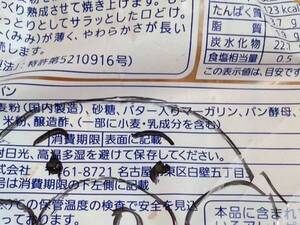 っくり熟成させて焼き上げます。も
っとりとしてサラッとした口どけ。
くみみ)が薄く、やわらかさが長い
す。
製法」:特許第5210916号)
たんぱく質
脂質
炭水化物
食塩相当量 0.5
この表示値は、目安で
パン
麦粉(国内製造)、砂糖、バター入りマーガリン、パン酵母、
米粉、醸造酢、(一部に小麦・乳成分を含む)
消費期限 表面に記載
射日光、高温多湿を避けて保存してください。
式会社 461-8721 名古屋市東区白壁五丁目
号は消費期限の下左側に記載
℃の保管温度の検査で安全を見込
本品に含まれ